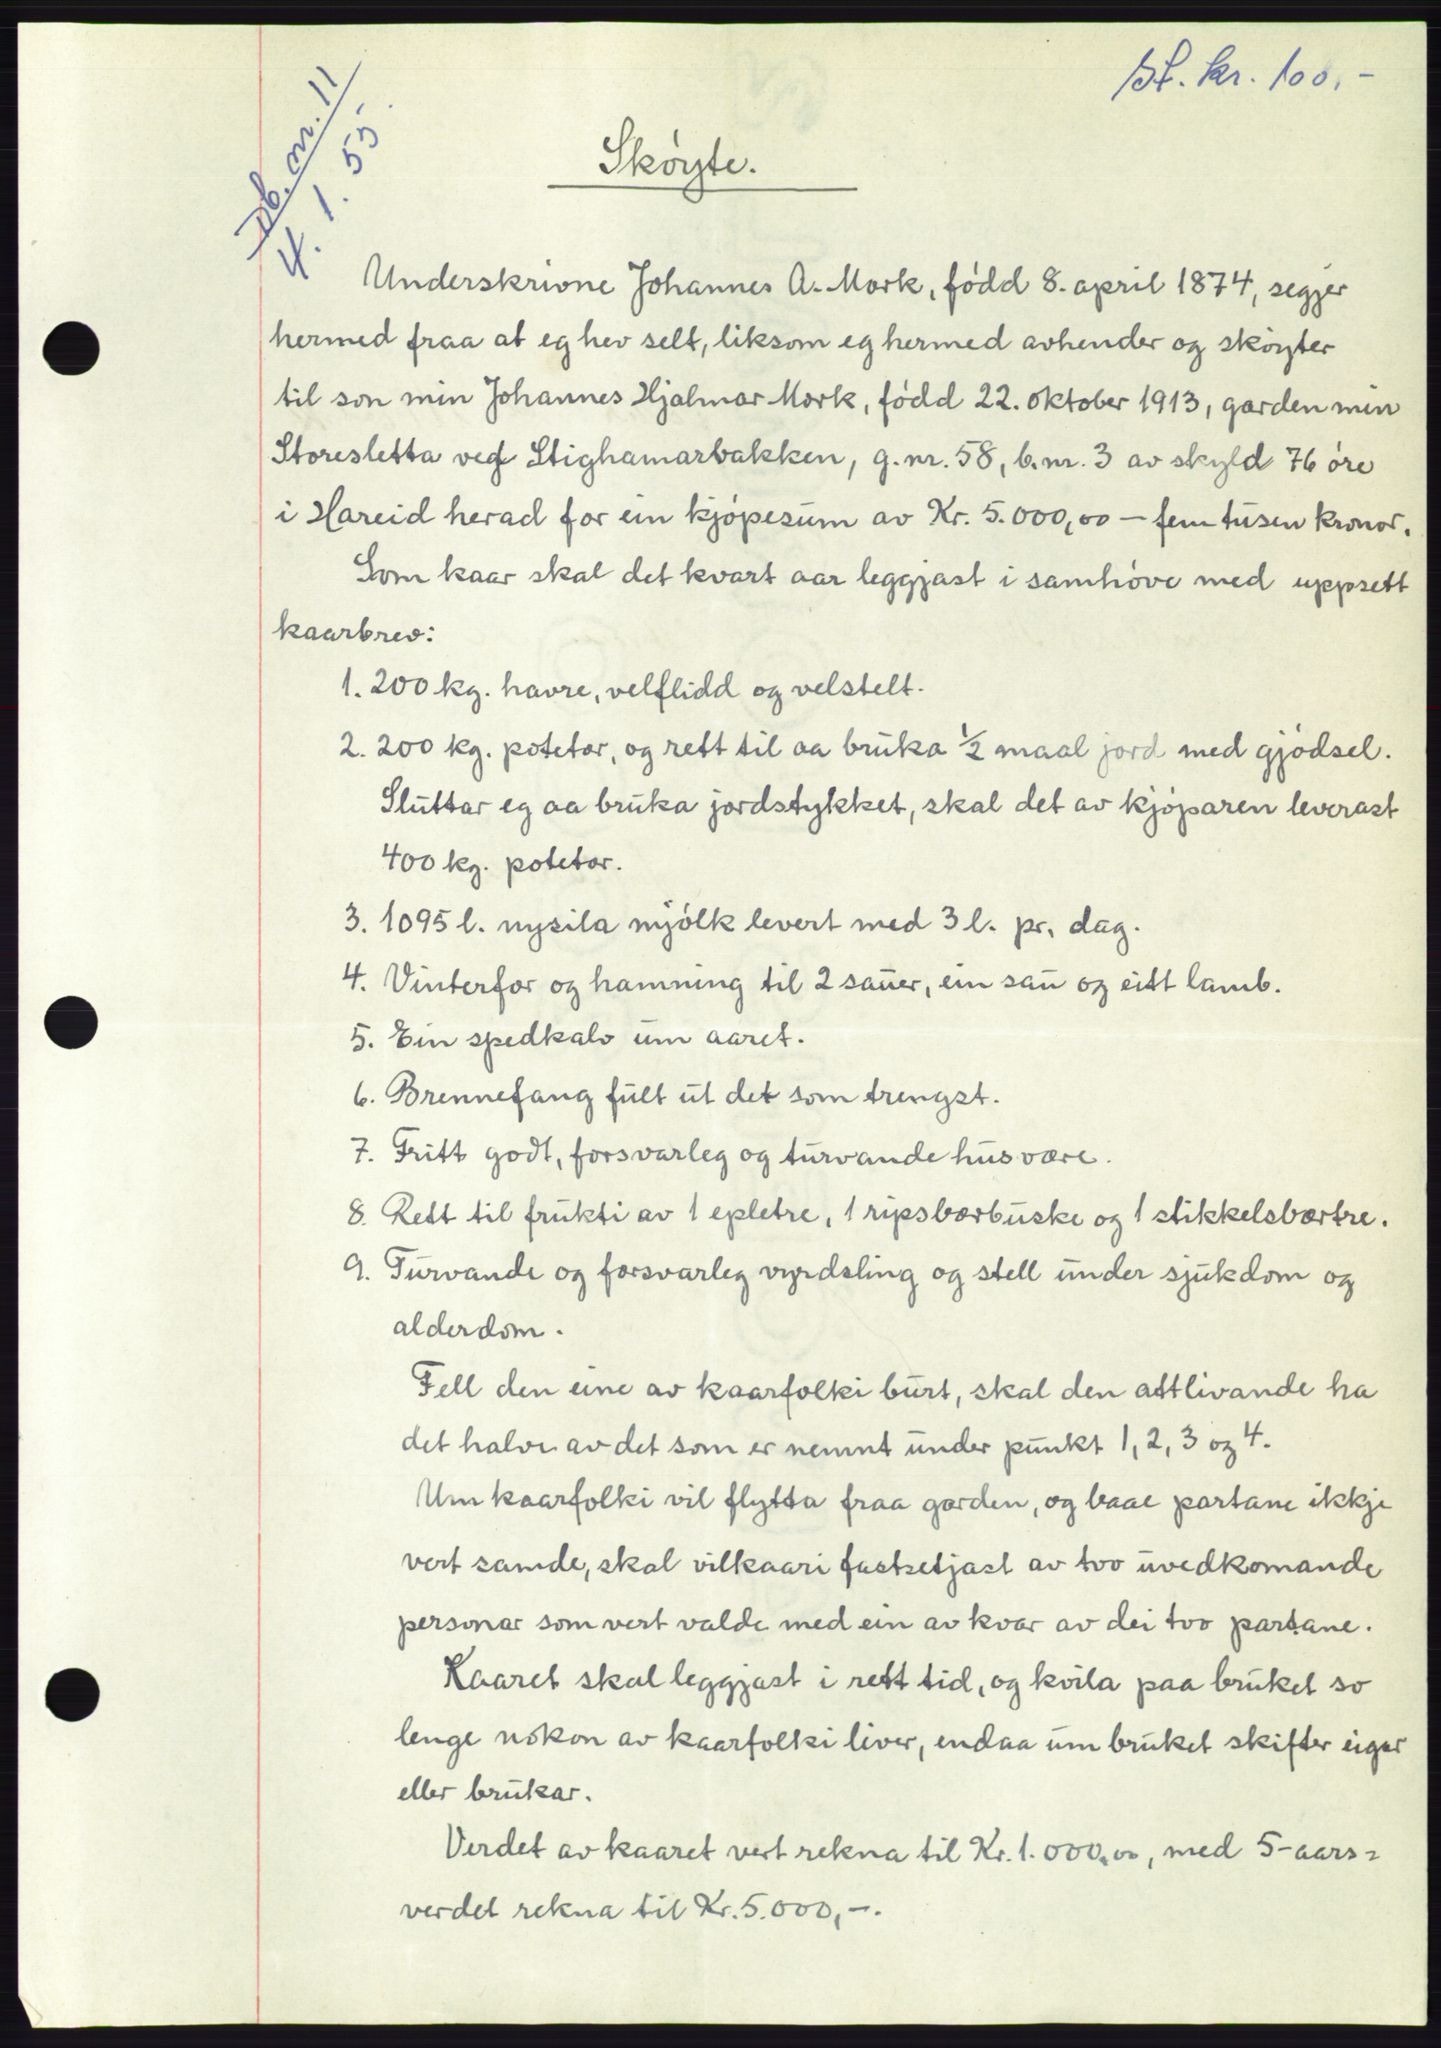 St. kr. 100,-
Db. nr. 11
4. 1. 55.
Skøyte.
Underskrivne Johannes A. Mork, fødd 8. april 1874, segjer
hermed fraa at eg hev selt, liksom eg hermed avhender og skøyter
til son min Johannes Hjalmar Mork, fødd 22. oktober 1913, garden min
Storesletta ved Stighamarbakken, g.nr. 58, b.nr. 3 av skyld 76 øre
i Hareid herad for ein kjøpesum av Kr. 5.000,00 — fem tusen kronor.
Som kaar skal det kvart aar leggjast i samhøve med uppsett
kaarbrev:
1. 200 kg. havre, velflidd og velstelt.
2. 200 kg. potetor, og rett til aa bruka ½ maal jord med gjødsel.
Sluttar eg aa bruka jordstykket, skal det av kjøparen leverast
400 kg. potetor.
3. 1095 l. nysila mjølk levert med 3 l. pr. dag.
4. Vinterfor og hamning til 2 sauer, ein sau og eitt lamb.
5. Ein spedkalv um aaret.
6. Brennefang fult ut det som trengst.
7. Fritt godt, forsvarleg og turvande husvære.
8. Rett til frukti av 1 epletre, 1 ripsbærbuske og 1 stikkelsbærtre.
9. Turvande og forsvarleg vyrdsling og stell under sjukdom og
alderdom.
Fell den eine av kaarfolki burt, skal den attlivande ha
det halve av det som er nemnt under punkt 1, 2, 3 og 4.
Um kaarfolki vil flytta fraa garden, og baae partane ikkje
vert samde, skal vilkaari fastsetjast av tvo uvedkomande
personar som vert valde med ein av kvar av dei tvo partane.
Kaaret skal leggjast i rett tid, og kvila paa bruket so
lenge nokon av kaarfolki liver, endaa um bruket skifter eigar
eller brukar.
Verdet av kaaret vert rekna til Kr. 1.000,00, med 5-aars=
verdet rekna til Kr. 5.000,—.